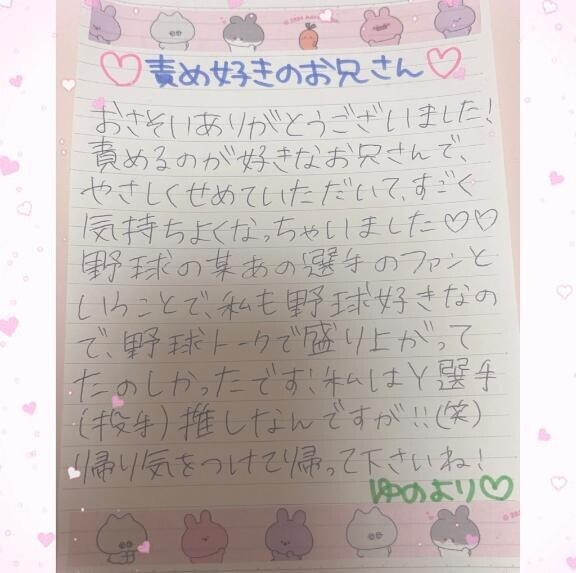 ♡責め好きのお兄さん♡
おさそいありがとうございました！
責めるのが好きなお兄さんで、
やさしくせめていただいて、すごく
気持ちよくなっちゃいました♡♡
野球の某あの選手のファンと
いうことで、私も野球好きなの
で、野球トークで盛り上がって
たのしかったです！私はY選手
(投手)推しなんですが!!(笑)
帰り気をつけて帰って下さいね！
ゆのより♡